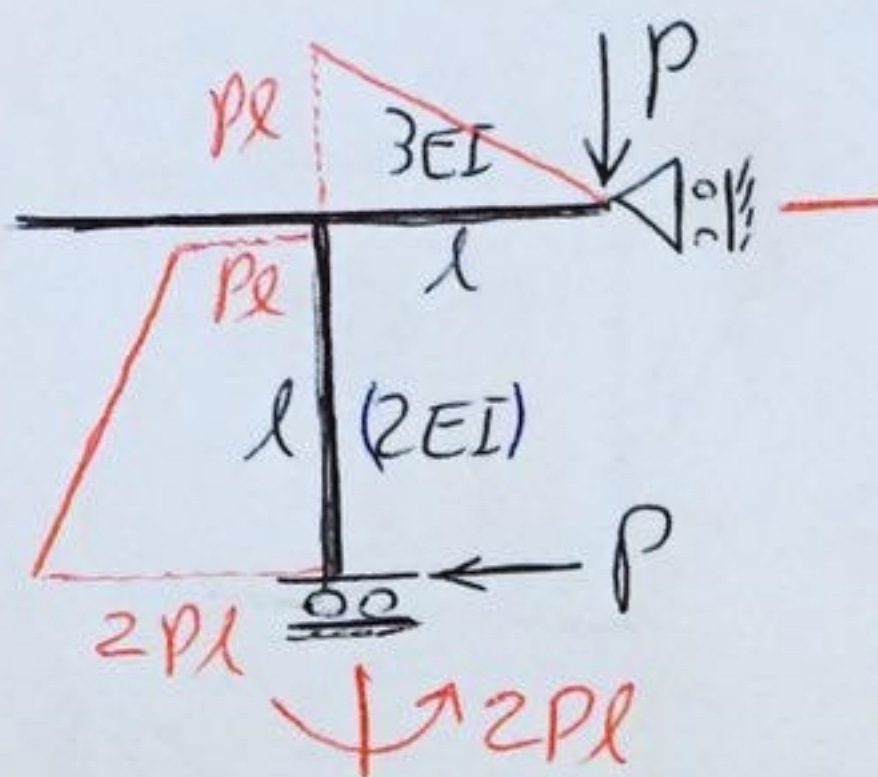 P
Pl
3EI
l
Pl
l (2EI)
P
2Pl
2Pl